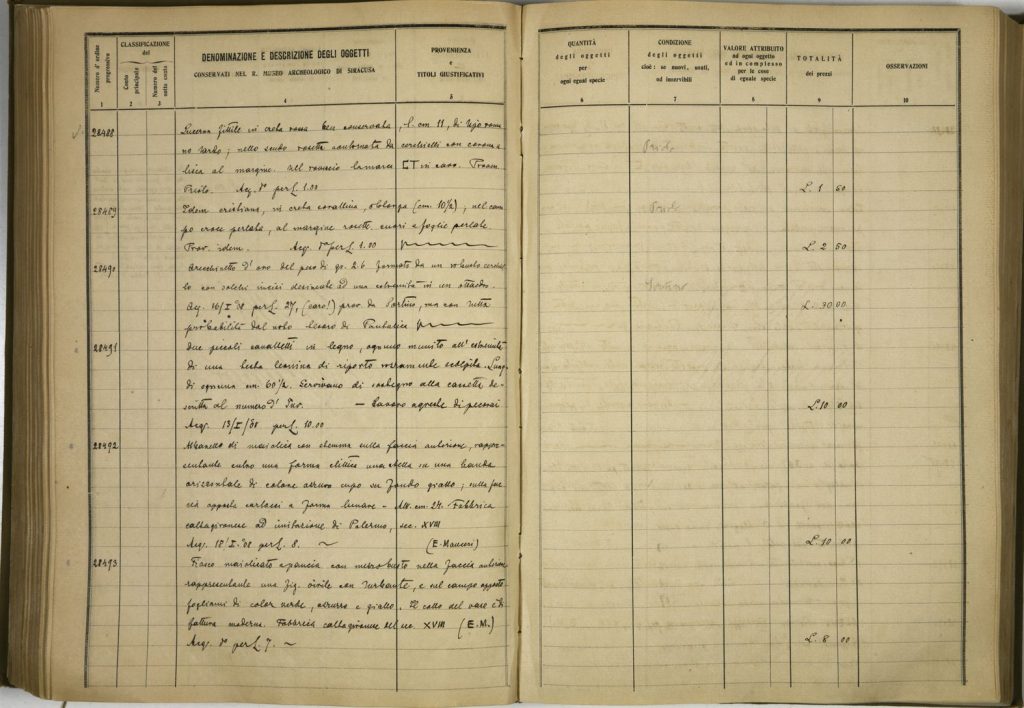 Numero d'ordine progressivo
CLASSIFICAZIONE
del
Conto principale
Numero del sotto conto
DENOMINAZIONE E DESCRIZIONE DEGLI OGGETTI
CONSERVATI NEL R. MUSEO ARCHEOLOGICO DI SIRACUSA
PROVENIENZA
e
TITOLI GIUSTIFICATIVI
1 2 3 4 5
28488
Lucerna fittile in creta rossa ben conservata, l. cm 11, di tipo roma
no tardo; nello scudo rosetta contornata da cerchielli con corona
liscia al margine. All' CT in cavo. Proven.
Priolo. Acq. per L. 1.00
28489
Idem cristiana, in creta corallina, oblonga (cm. 10½); nel cam
po croce perlata, al margine rosette cuori e foglie perlate.
Prov. idem. Acq. per L. 1.00
28490
Orecchinetto d'oro del peso di gr. 2.6 formato da un robusto cerchiel
lo con solchi incisi desinente ad una estremità in un ottaedro.
Acq. /I/08 per L. 27, (caro!) prov. da, ma con tutta
probabilità dal noto tesoro di Pantalica
28491
Due piccoli cavalletti in legno, ognuno munito all'estremità
di una testa leonina di riporto scolpita. Lung.
di ognuna cm. 60½. Servivano di sostegno alla cassetta de-
scritta al numero d'Inv. — Lavoro agreste di pecorai
Acq. 13/I/08 per L. 10.00
28492
Albarello di maiolica con stemma sulla faccia anteriore, rappre-
sentante entro una forma ellittica una stella su una banda
orizzontale di colore azzurro cupo su fondo giallo; sulla fac
cia opposta a forma lunare - Alt. cm. 24. Fabbrica
caltagironese ad imitazione di Palermo, sec. XVIII
Acq. 18/I/08 per L. 8. (E. Mauceri)
28493
Fiasco maiolicato a pancia con mezzobusto nella faccia anteriore
rappresentante una fig. civile con turbante, e nel campo opposto
fogliami di color verde, azzurro e giallo. Il collo del vaso è di
fattura moderna. Fabbrica caltagironese del sec. XVIII (E.M.)
Acq. per L. 7.
QUANTITÀ
degli oggetti
per
ogni egual specie
CONDIZIONE
degli oggetti
cioè: se nuovi, usati,
od inservibili
VALORE ATTRIBUITO
ad ogni oggetto
ed in complesso
per le cose
di eguale specie
TOTALITÀ
dei prezzi
OSSERVAZIONI
6 7 8 9 10
L. 1 50
L. 2 50
L. 30 00
L. 10 00
L. 10 00
L. 8 00